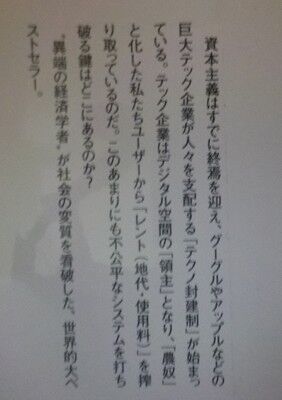 資本主義はすでに終焉を迎え、グーグルやアップルなどの
巨大テック企業が人々を支配する「テクノ封建制」が始まっ
ている。テック企業はデジタル空間の「領主」となり、「農奴」
と化した私たちユーザーから「レント（地代・使用料）」を搾
り取っているのだ。このあまりにも不公平なシステムを打ち
破る鍵はどこにあるのか？
“異端の経済学者”が社会の変質を看破した、世界的大ベ
ストセラー。